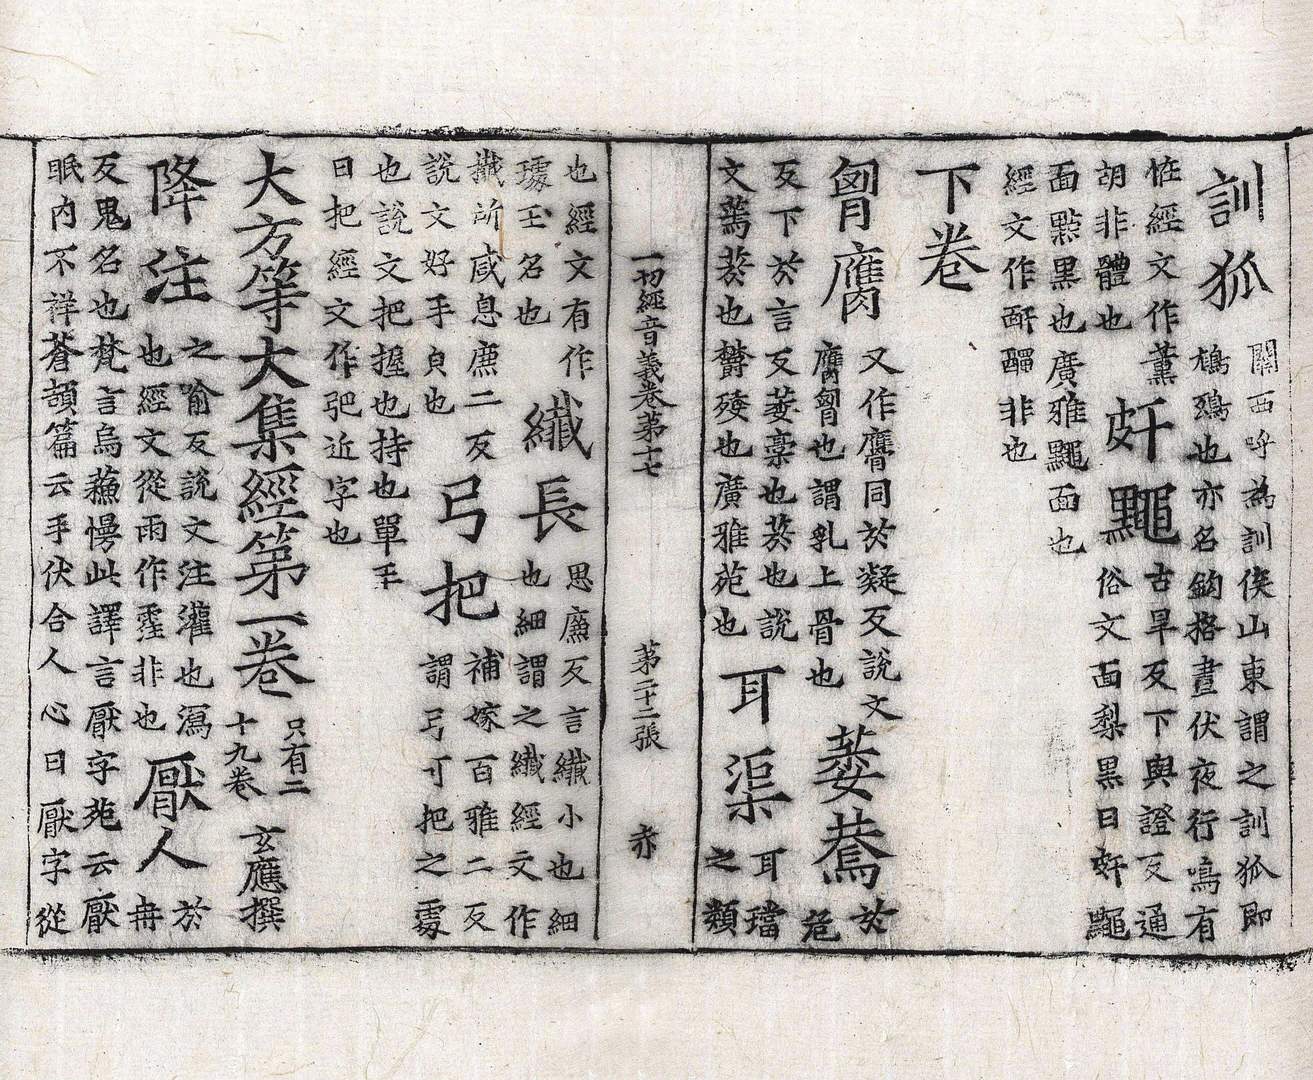 訓狐
關西呼為訓侯山東謂之訓狐即
鵂鵄也亦名鈎格晝伏夜行鳴有
恠經文作薰
胡非體也
皯䵴
古旱反下與證反通
俗文面梨黑曰皯䵴
面㸃黑也廣雅䵴面也
經文作非也
下卷
匈膺
又作膺同於凝反說文
膺匈也謂乳上骨也
萎蔫
於
危
反下於言反萎槀也菸也說
文蔫菸也欝殘也廣雅菀也
耳渠
耳璫
之類
一切經音義卷第十七 第二十二張 赤
也經文有作
璩玉名也
纖長
思廉反言纖小也細
也細謂之纖經文作
攕所咸息廉二反
說文好手皃也
弓把
補嫁百雅二反
謂弓可把之處
也說文把握也持也單手
曰把經文作弝近字也
大方等大集經第一卷
只有二
十九卷
玄應撰
降注
之喻反說文注灌也瀉
也經文從雨作霔非也
厭人
於
冉
反鬼名也梵言烏蘓慢此譯言厭字苑云厭
眠內不祥蒼頡篇云手伏合人心曰厭字從